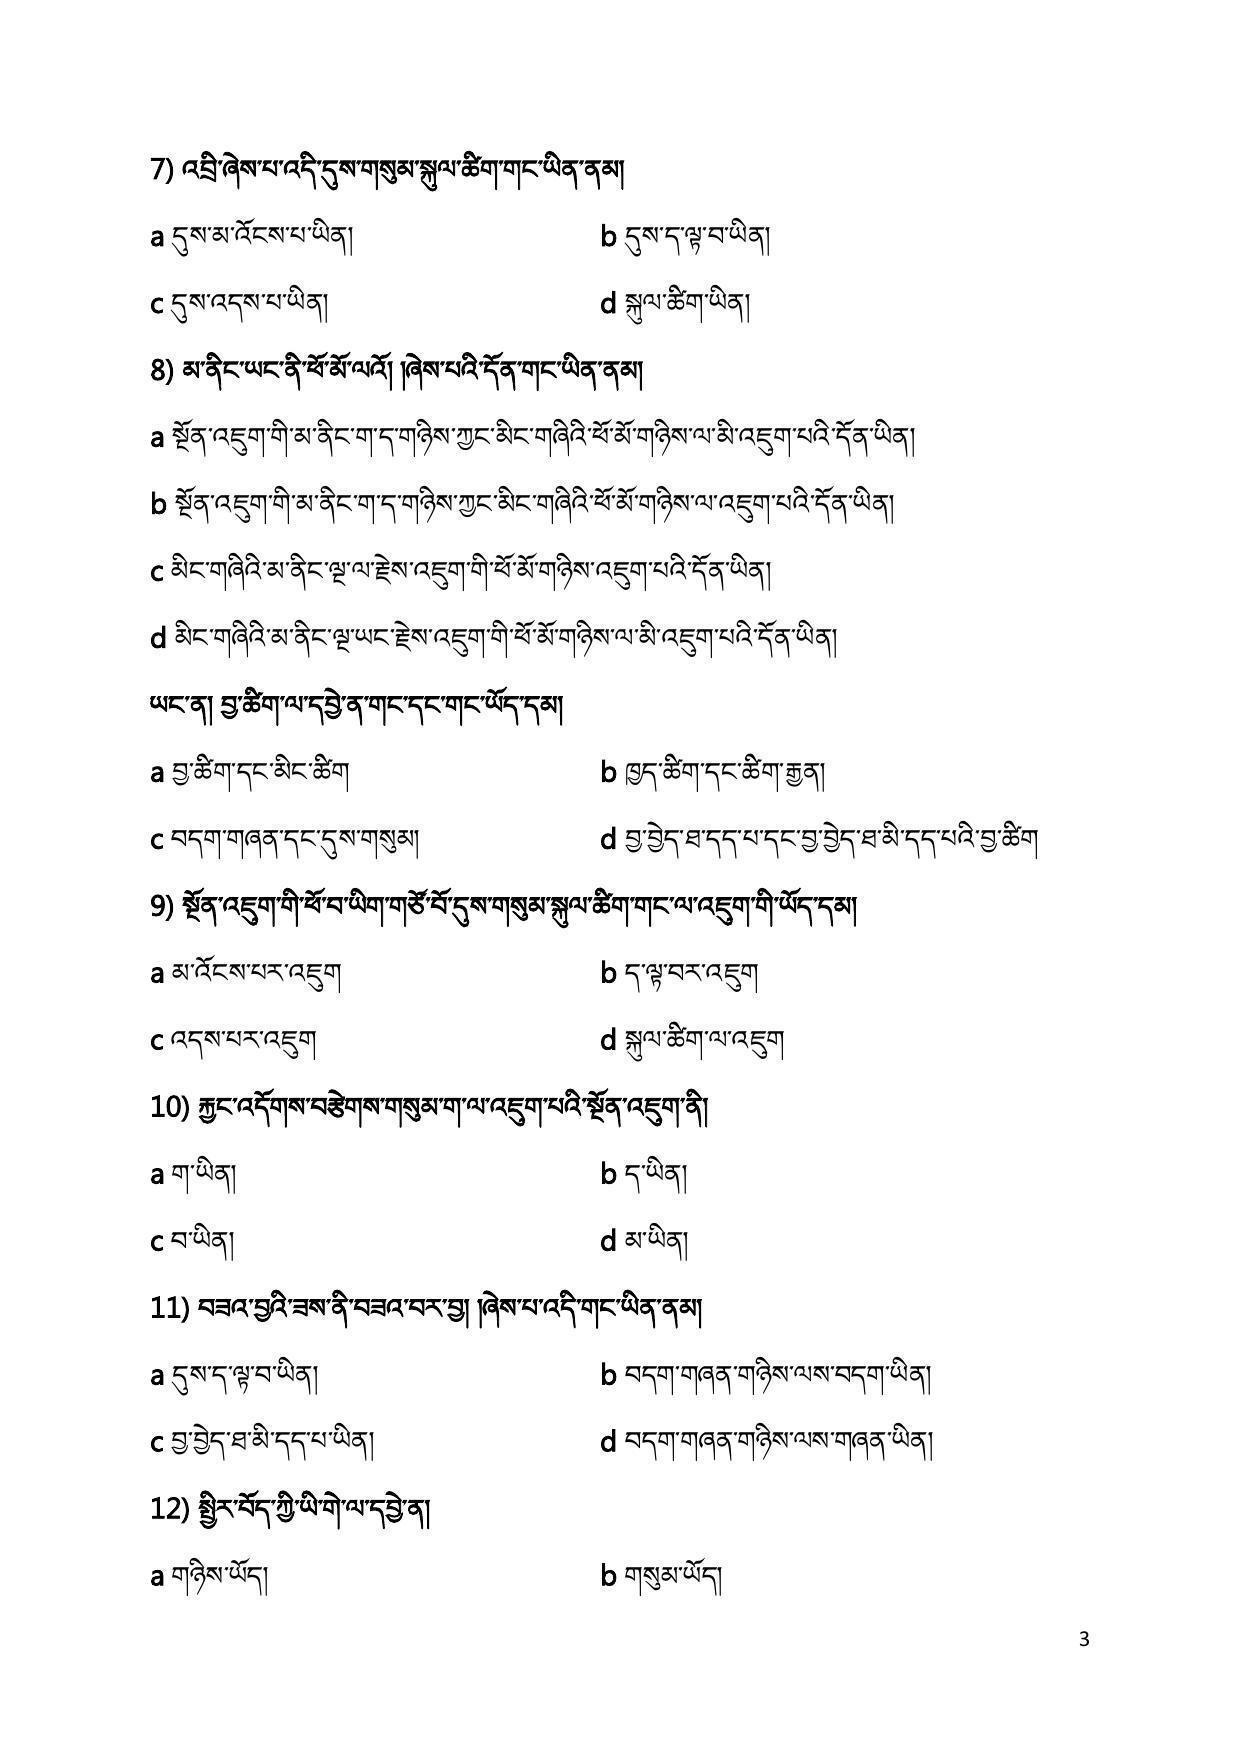 7) འབྲི་ཞེས་པ་འདི་དུས་གསུམ་སྐུལ་ཚིག་གང་ཡིན་ནམ།
a དུས་མ་འོངས་པ་ཡིན།
b དུས་ད་ལྟ་བ་ཡིན།
c དུས་འདས་པ་ཡིན།
d སྐུལ་ཚིག་ཡིན།
8) མ་ནིང་ཡང་ནི་ཕོ་མོ་ལའོ། །ཞེས་པའི་དོན་གང་ཡིན་ནམ།
a སྔོན་འཇུག་གི་མ་ནིང་ག་ད་གཉིས་ཀྱང་མིང་གཞིའི་ཕོ་མོ་གཉིས་ལ་མི་འཇུག་པའི་དོན་ཡིན།
b སྔོན་འཇུག་གི་མ་ནིང་ག་ད་གཉིས་ཀྱང་མིང་གཞིའི་ཕོ་མོ་གཉིས་ལ་འཇུག་པའི་དོན་ཡིན།
c མིང་གཞིའི་མ་ནིང་ལྔ་ལ་རྗེས་འཇུག་གི་ཕོ་མོ་གཉིས་འཇུག་པའི་དོན་ཡིན།
d མིང་གཞིའི་མ་ནིང་ལྔ་ཡང་རྗེས་འཇུག་གི་ཕོ་མོ་གཉིས་ལ་མི་འཇུག་པའི་དོན་ཡིན།
ཡང་ན། བྱ་ཚིག་ལ་དབྱེ་ན་གང་དང་གང་ཡོད་དམ།
a བྱ་ཚིག་དང་མིང་ཚིག
b ཁྱད་ཚིག་དང་ཚིག་རྒྱན།
c བདག་གཞན་དང་དུས་གསུམ།
d བྱ་བྱེད་ཐ་དད་པ་དང་བྱ་བྱེད་ཐ་མི་དད་པའི་བྱ་ཚིག
9) སྔོན་འཇུག་གི་ཕོ་བ་ཡིག་གཙོ་བོ་དུས་གསུམ་སྐུལ་ཚིག་གང་ལ་འཇུག་གི་ཡོད་དམ།
a མ་འོངས་པར་འཇུག
b ད་ལྟ་བར་འཇུག
c འདས་པར་འཇུག
d སྐུལ་ཚིག་ལ་འཇུག
10) རྐྱང་འདོགས་བརྩེགས་གསུམ་ག་ལ་འཇུག་པའི་སྔོན་འཇུག་ནི།
a ག་ཡིན།
b ད་ཡིན།
c བ་ཡིན།
d མ་ཡིན།
11) བཟའ་བྱའི་ཟས་ནི་བཟའ་བར་བྱ། །ཞེས་པ་འདི་གང་ཡིན་ནམ།
a དུས་ད་ལྟ་བ་ཡིན།
b བདག་གཞན་གཉིས་ལས་བདག་ཡིན།
c བྱ་བྱེད་ཐ་མི་དད་པ་ཡིན།
d བདག་གཞན་གཉིས་ལས་གཞན་ཡིན།
12) སྤྱིར་བོད་ཀྱི་ཡི་གེ་ལ་དབྱེ་ན།
a གཉིས་ཡོད།
b གསུམ་ཡོད།
3